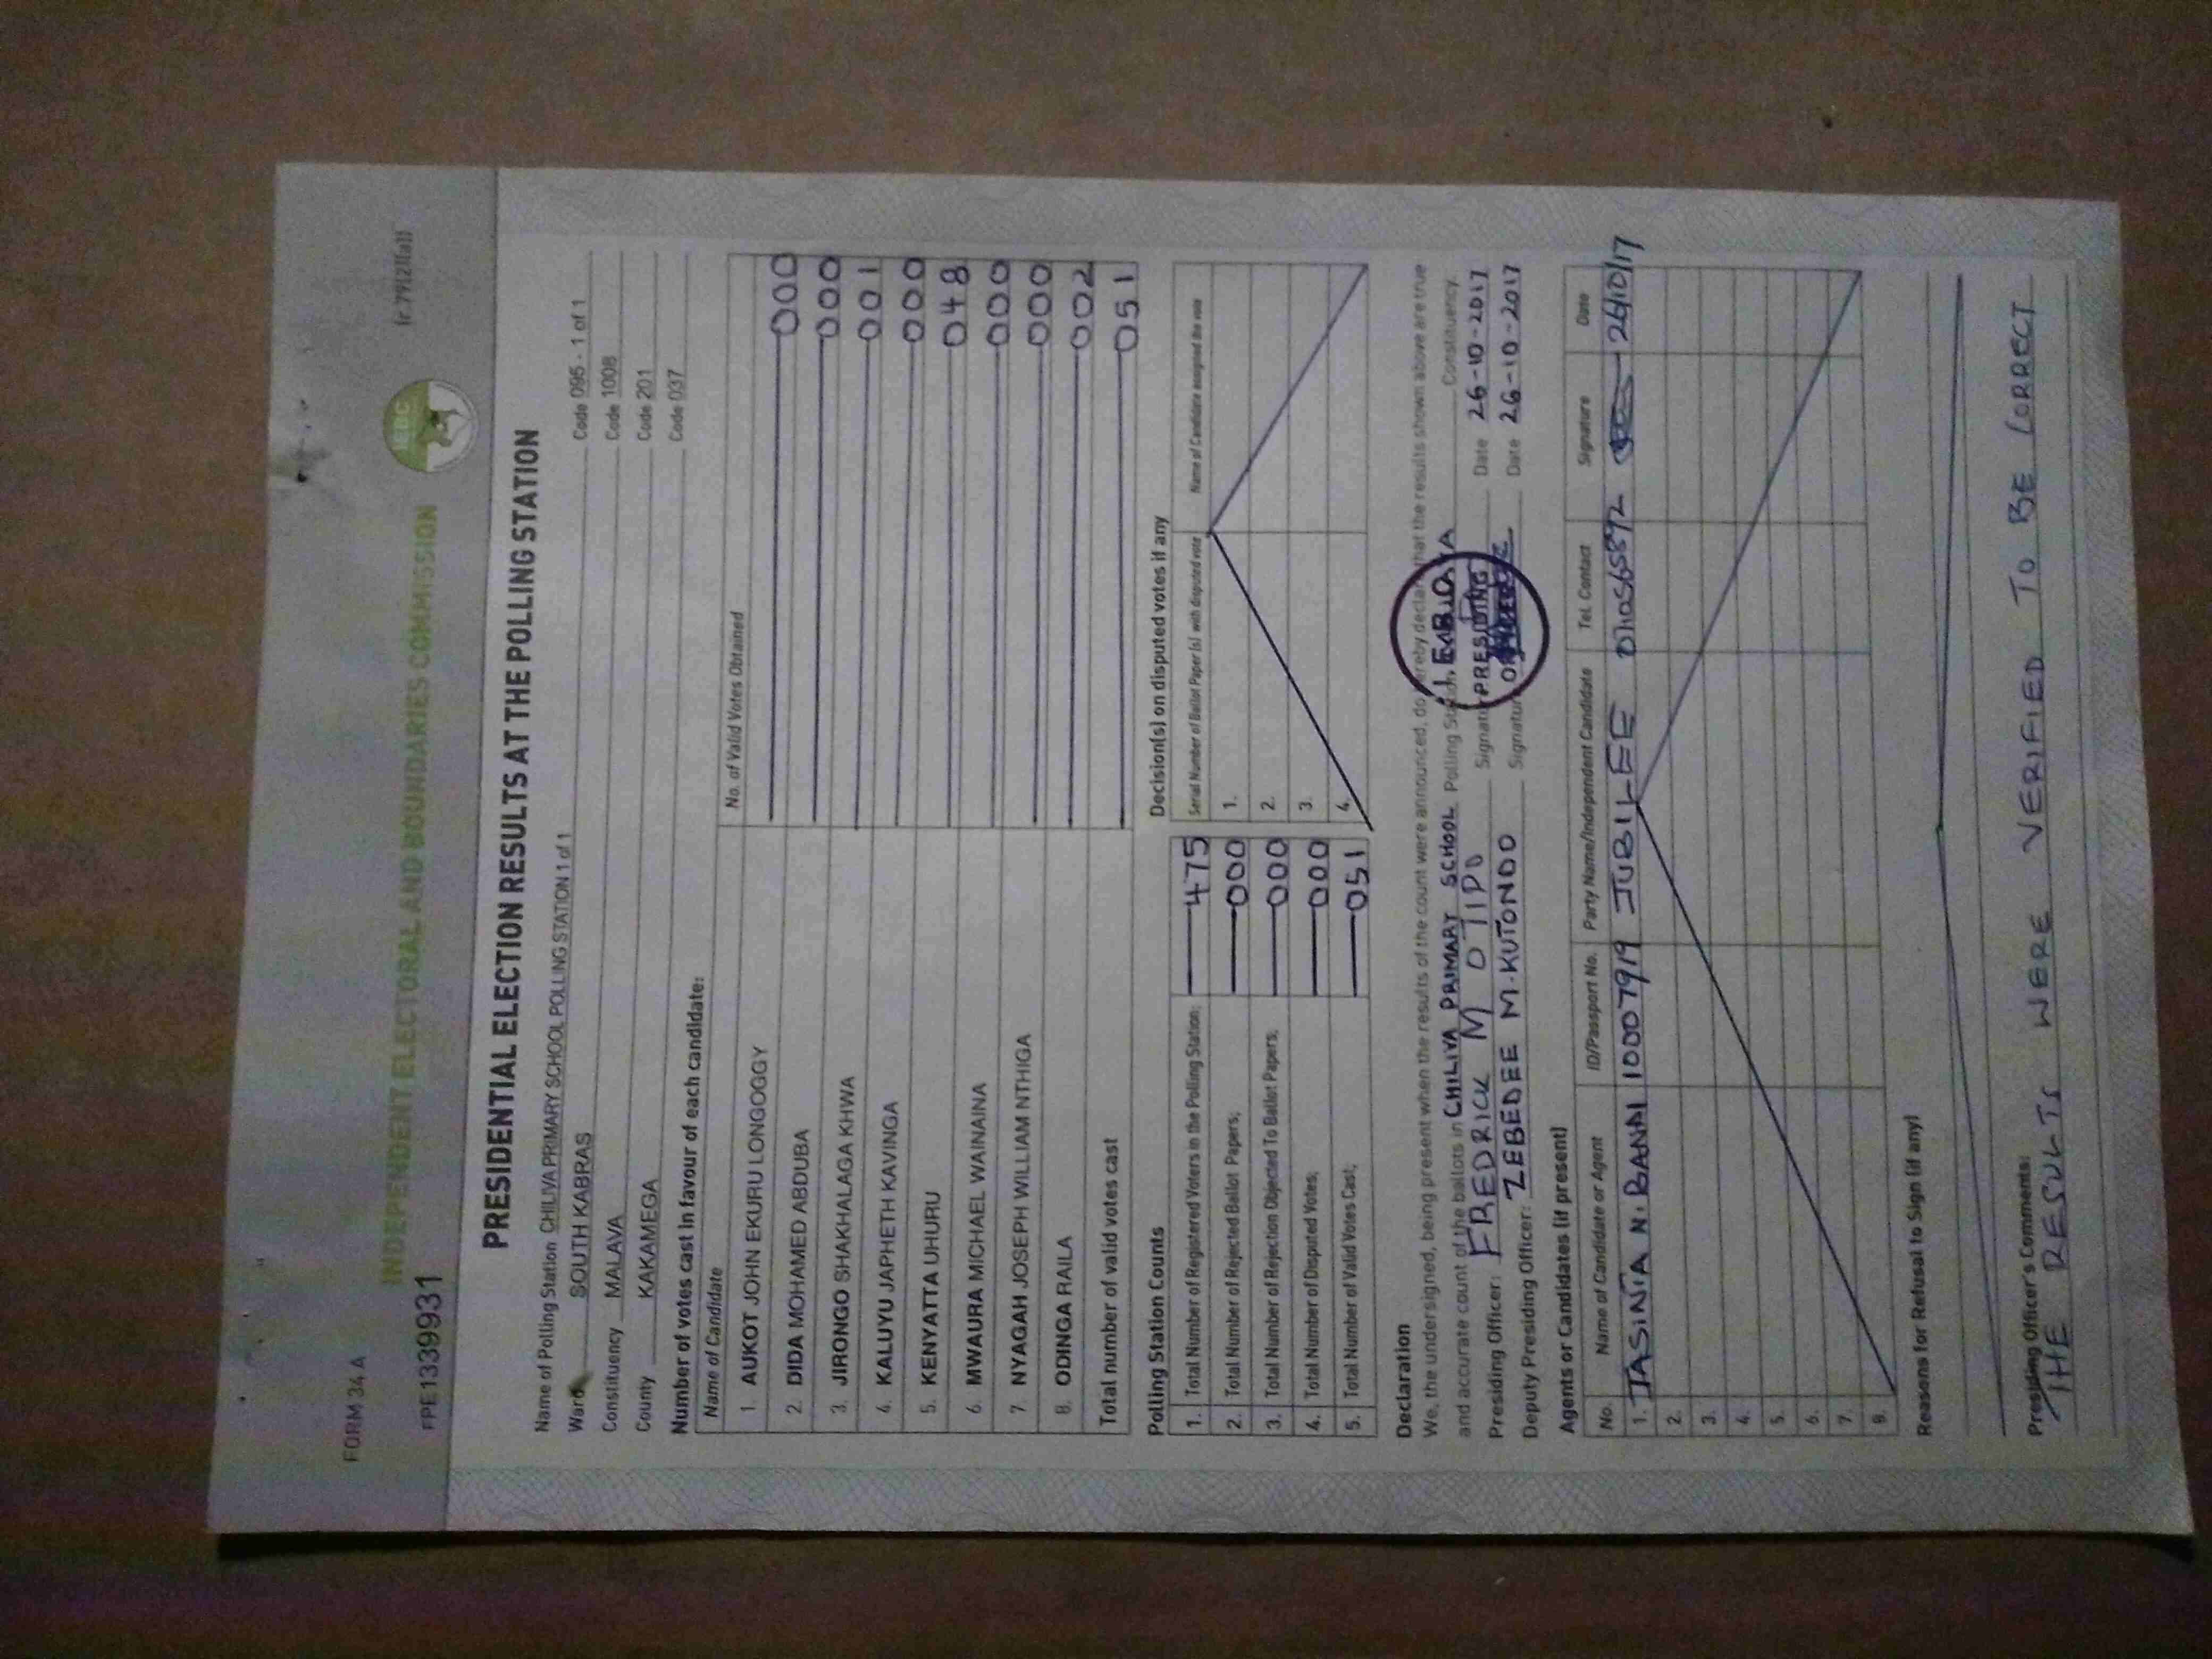 FORM 34 A
(r.79(2)(a))
INDEPENDENT ELECTORAL AND BOUNDARIES COMMISSION
IEBC
FPE1339931
PRESIDENTIAL ELECTION RESULTS AT THE POLLING STATION
Name of Polling Station CHILIVA PRIMARY SCHOOL POLLING STATION 1 of 1 Code 095 - 1 of 1
Ward SOUTH KABRAS Code 1008
Constituency MALAVA Code 201
County KAKAMEGA Code 037
Number of votes cast in favour of each candidate:
Name of Candidate No. of Valid Votes Obtained
1. AUKOT JOHN EKURU LONGOGGY 000
2. DIDA MOHAMED ABDUBA 000
3. JIRONGO SHAKHALAGA KHWA 001
4. KALUYU JAPHETH KAVINGA 000
5. KENYATTA UHURU 048
6. MWAURA MICHAEL WAINAINA 000
7. NYAGAH JOSEPH WILLIAM NTHIGA 000
8. ODINGA RAILA 002
Total number of valid votes cast 051
Polling Station Counts
1. Total Number of Registered Voters in the Polling Station; 475
2. Total Number of Rejected Ballot Papers; 000
3. Total Number of Rejection Objected To Ballot Papers; 000
4. Total Number of Disputed Votes; 000
5. Total Number of Valid Votes Cast; 051
Decision(s) on disputed votes if any
Serial Number of Ballot Paper (s) with disputed vote Name of Candidate assigned the vote
1.
2.
3.
4.
Declaration
We, the undersigned, being present when the results of the count were announced, do hereby declare that the results shown above are true
and accurate count of the ballots in CHILIVA PRIMARY SCHOOL Polling Station Constituency.
Presiding Officer: FREDRICK M OTIPO Signature Date 26-10-2017
Deputy Presiding Officer: ZEBEDEE M. KUTONDO Signature Date 26-10-2017
PRESIDING
Agents or Candidates (if present)
No. Name of Candidate or Agent ID/Passport No. Party Name/Independent Candidate Tel. Contact Signature Date
1. JASINTA N. 10007919 JUBILEE 26/10/17
2.
3.
4.
5.
6.
7.
8.
Reasons for Refusal to Sign (if any)
Presiding Officer's Comments:
THE RESULTS WERE VERIFIED TO BE CORRECT